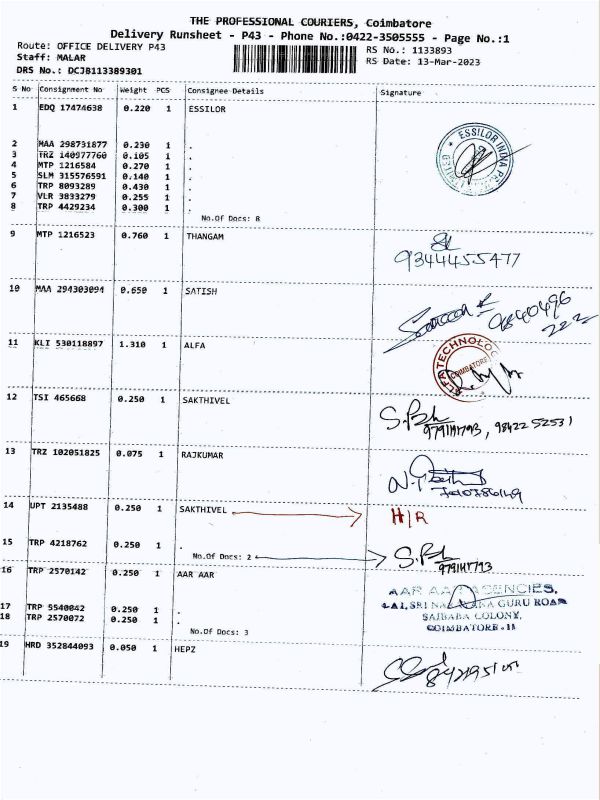 THE PROFESSIONAL COURIERS, Coimbatore
Delivery Runsheet - P43 - Phone No.:0422-3505555 - Page No.:1
Route: OFFICE DELIVERY P43
RS No.: 1133893
Staff: MALAR
RS Date: 13-Mar-2023
DRS No.: DCJB113389301
S No Consignment No Weight PCS Consignee Details Signature
1 EDQ 17474638 0.220 1 ESSILOR
ESSILOR INDIA
2 MAA 298731877 0.230 1 .
3 TRZ 140977760 0.105 1 .
4 MTP 1216584 0.270 1 .
5 SLM 315576591 0.140 1 .
6 TRP 8093289 0.430 1 .
7 VLR 3833279 0.255 1 .
8 TRP 4429234 0.300 1 .
No.Of Docs: 8
9 MTP 1216523 0.760 1 THANGAM
9344455477
10 MAA 294303094 0.650 1 SATISH
9840496
222
11 KLI 530118897 1.310 1 ALFA
ALFA TECHNOLOG
COIMBATORE
12 TSI 465668 0.250 1 SAKTHIVEL
98422 52531
13 TRZ 102051825 0.075 1 RAJKUMAR
14 UPT 2135488 0.250 1 SAKTHIVEL H/R
15 TRP 4218762 0.250 1 .
No.Of Docs: 2
16 TRP 2570142 0.250 1 AAR AAR
AAR AAR AGENCIES,
GURU ROAD
SAIBABA COLONY,
COIMBATORE-11
17 TRP 5540042 0.250 1 .
18 TRP 2570072 0.250 1 .
No.Of Docs: 3
19 HRD 352844093 0.050 1 HEPZ